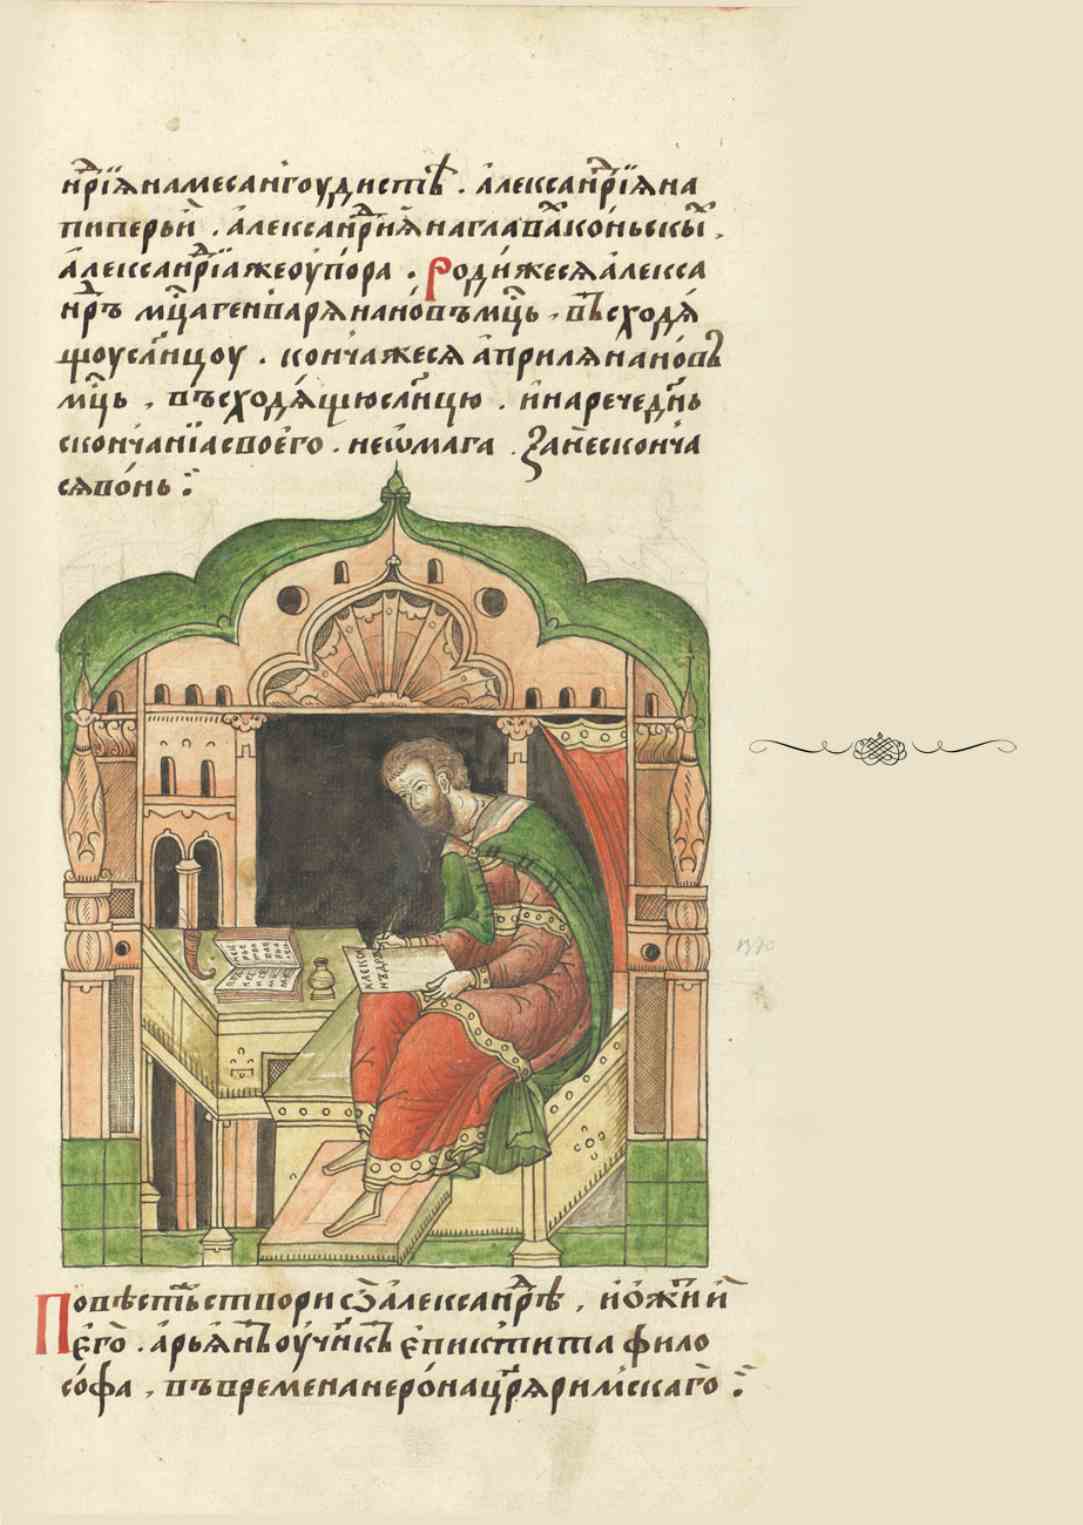 нд҇рїѧ на месангоудистѣ . алеѯандрїѧ на
пиперьи . алеѯанд҇риѧ на главах коньскы́ ,
алеѯанд҇рїа же оу пора . Роди же сѧ алеѯа
ндръ мц҃а генварѧ на новъ мц҃ь , въсходѧ
щоу слн҃цоу . конча же сѧ априлѧ на новъ
мц҃ь , въсходѧщю слн҃цю . и нарече дн҃ь
скончанїа своего . неѡмага . Зане сконча
сѧ во нь :
алеѯа
ндръ
Повѣсть створи ѡ алеѯандрѣ , и о жнии
его . арьѧнъ оученикъ епиктита фило
софа , въ времена нерона цр҃ѧ римьскаго :